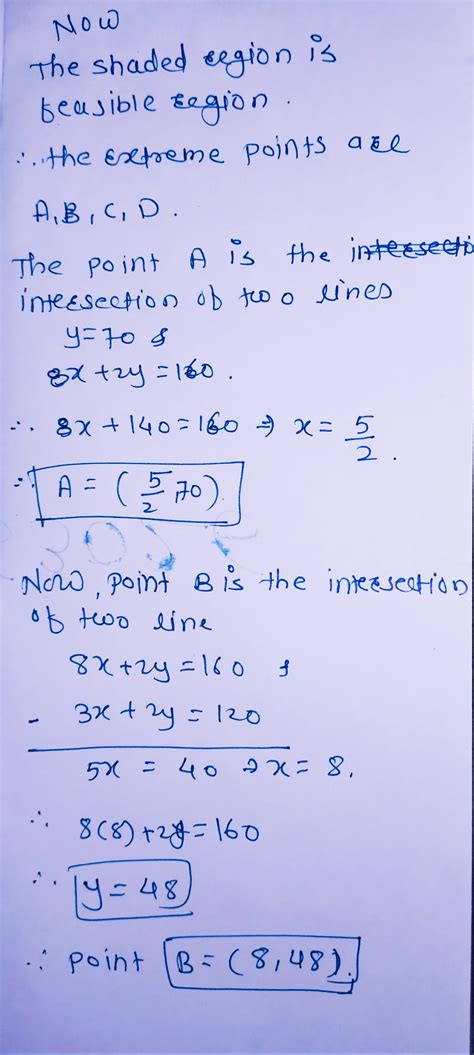 Now
The shaded region is
feasible region.
∴ the extreme points are
A, B, C, D.
The point A is the intersecti
intersection of two lines
y=70 &
8x+2y=160.
∴ 8x+140=160 ⇒ x= 5/2.
∴ A = (5/2 ,70).
Now, point B is the intersection
of two line
8x+2y=160 &
- 3x+2y=120
5x = 40 ⇒ x= 8.
∴ 8(8)+2y=160
∴ y=48
∴ point B=(8,48).